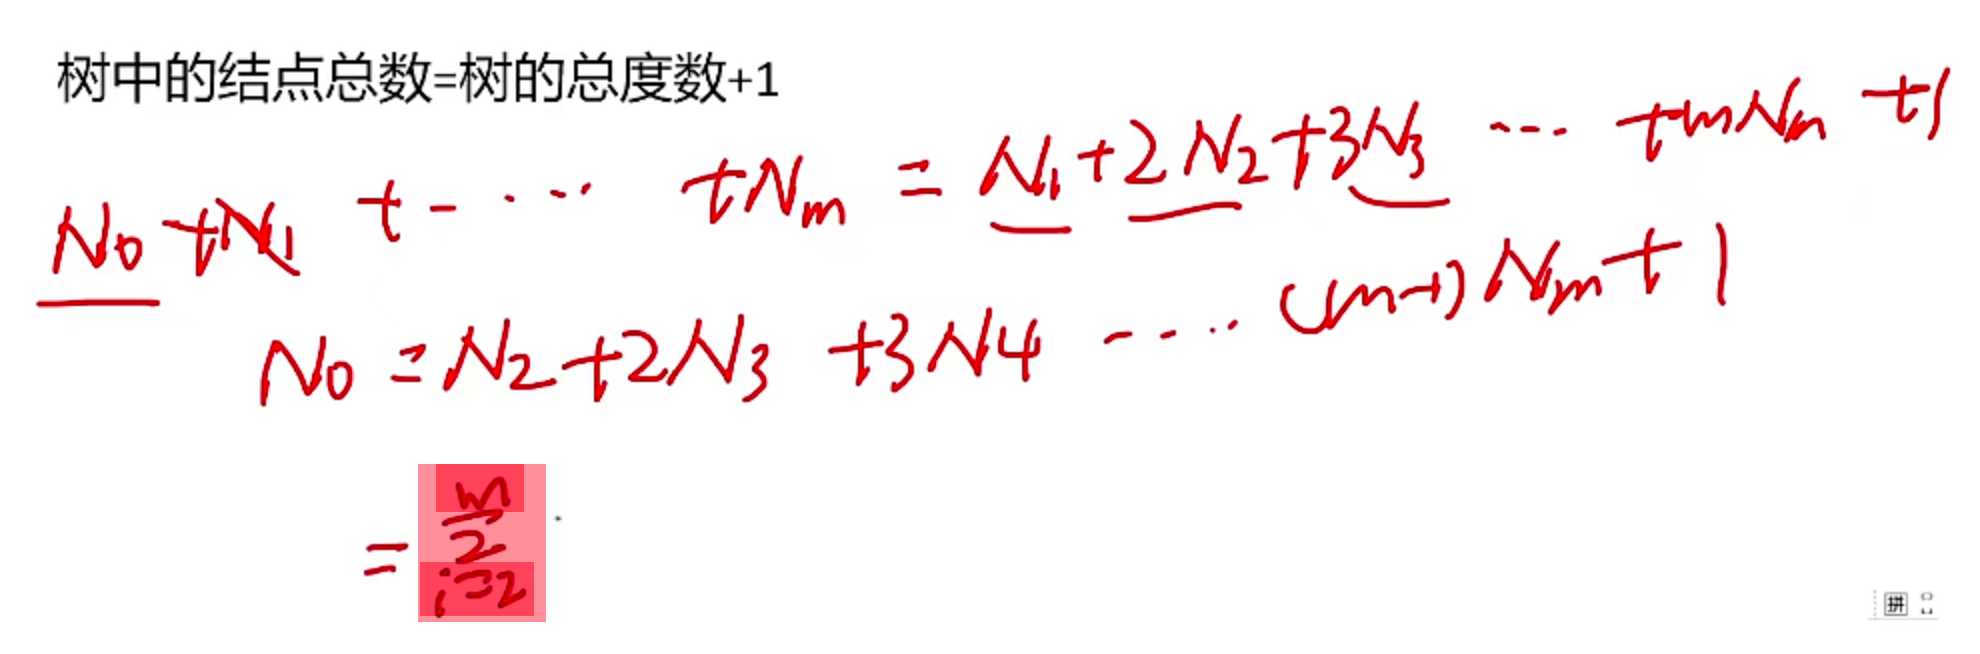 树中的结点总数=树的总度数+1
N0 +N1 + - ... +Nm = N1+2N2+3N3 ... +mNm +1
N0 = N2+2N3 +3N4 .... (m-1)Nm+1
= m
Σ
i=2
拼